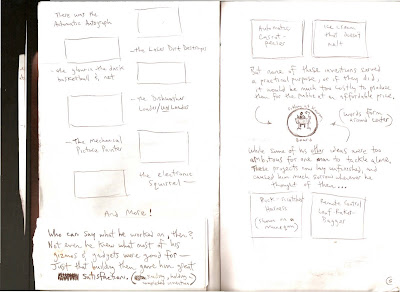 There was the
Automatic Autograph
— the Laser Dirt Destroyer
— the glow-in-the-dark
basketball & net
— the Dishwasher
Loader/UnLoader
— The Mechanical
Picture Painter
the electronic
Squirrel —
And More!
Who can say what he worked on, then?
Not even he knew what most of his
gizmos & gadgets were good for —
Just that building them gave him great
satisfaction.
Automatic
Carrot-
peeler
Ice Cream
that doesn't
melt
But none of these inventions served
a practical purpose, or if they did,
it would be much too costly to produce
them for the public at an affordable price.
Bears
(words form
around center)
While some of his other ideas were too
ambitious for one man to tackle alone,
These projects now lay unfinished, and
caused him much sorrow whenever he
thought of them...
Harness
(shown on a
Remote Control
Leaf Raker-
Bagger